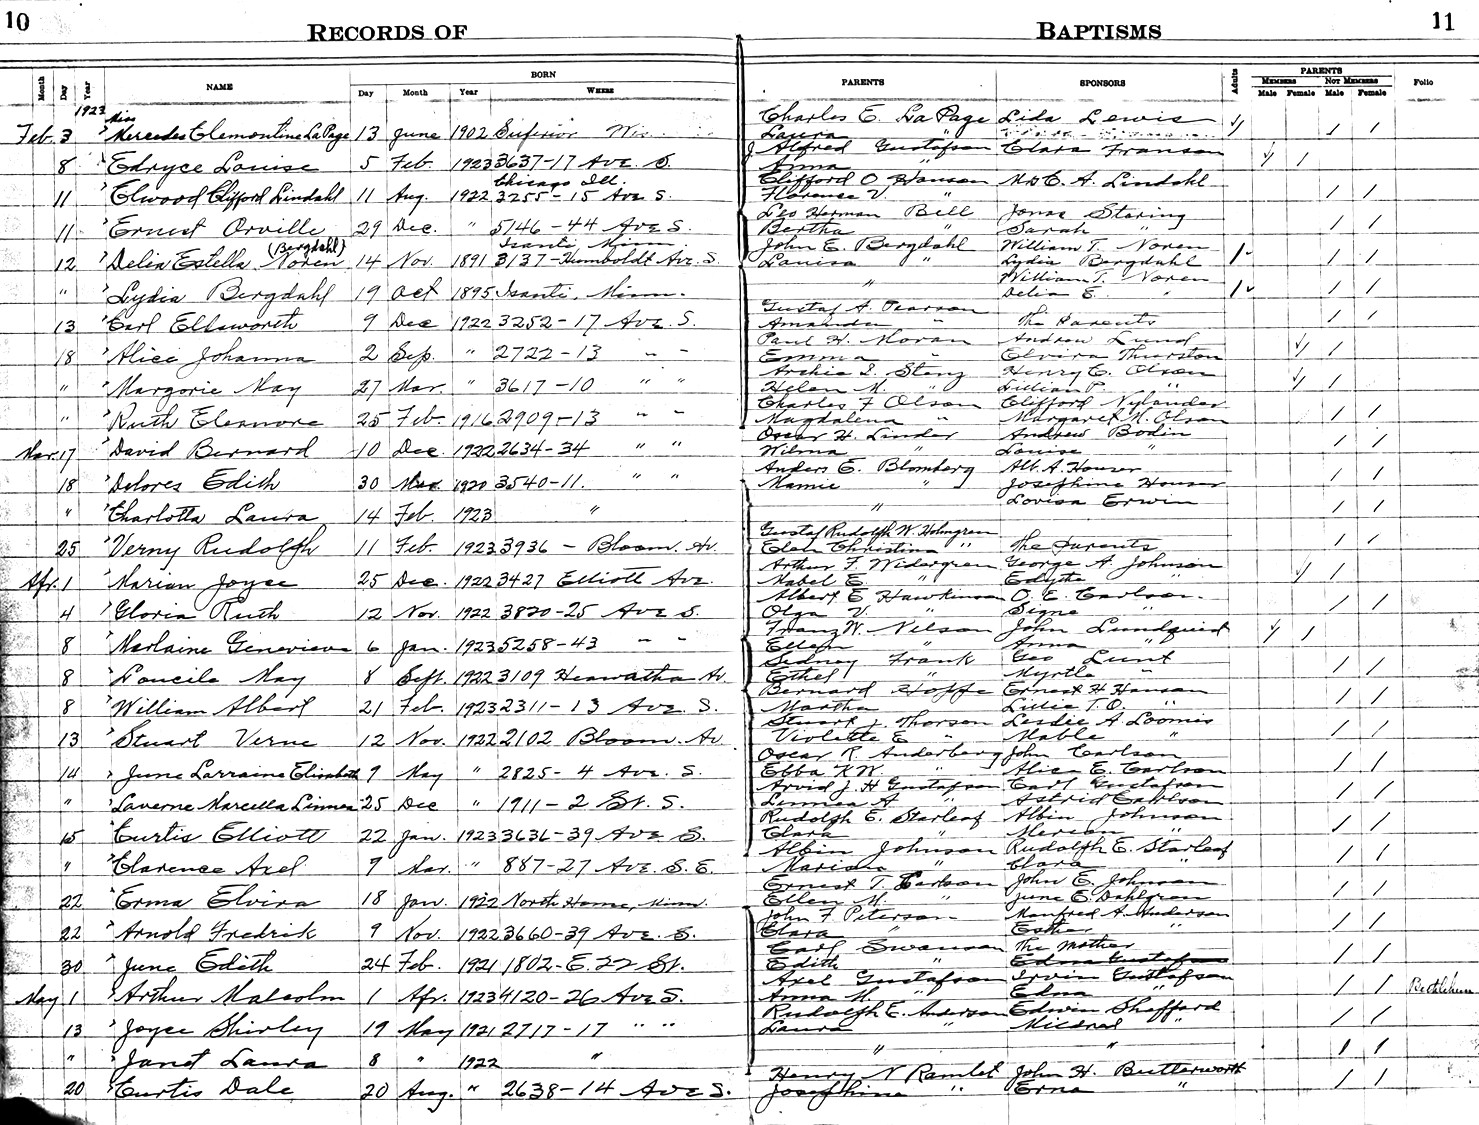 10
RECORDS OF
BAPTISMS
11
Month Day Year NAME BORN Day Month Year WHERE PARENTS SPONSORS Adults PARENTS MEMBERS Male Female NOT MEMBERS Male Female Folio
1923 Miss Charles E. LaPage Lida Lewis
Feb. 3 Mercedes Clemontine LaPage 13 June 1902 Superior Wis. Laura "
J. Alfred Gustafson Clara Franson
8 Edryce Louise 5 Feb. 1923 3637-17 Ave. S. Anna "
Chicago Ill. Clifford O. Hanson Mrs C. A. Lindahl
11 Elwood Clifford Lindahl 11 Aug. 1922 3255-15 Ave S. Florence V. "
Leo Herman Bell Jonas Staring
11 Ernest Orville 29 Dec. " 5146-44 Ave S. Bertha " Sarah "
(Bergdahl) Isanti, Minn. John E. Bergdahl William T. Noren
12 Delia Estella Noren 14 Nov. 1891 3137-Humboldt Ave. S. Louisa " Lydia Bergdahl
William T. Noren
" Lydia Bergdahl 19 Oct 1895 Isanti, Minn. " Delia E. "
Gustaf A. Pearson
13 Earl Ellsworth 9 Dec 1922 3252-17 Ave. S. Amanda " The Parents
Paul H. Moran Andrew Lund
18 Alice Johanna 2 Sep. " 2722-13 " " Emma " Elvira Thurston
Archie S. Stenz Henry C. Olson
" Margorie May 27 Mar. " 3617-10 " " Helen M. " Lillian P. "
Charles F Olson Clifford Nylander
" Ruth Eleanore 25 Feb. 1916 2909-13 " " Magdalena " Margaret M. Olson
Oscar H. Linder Andrew Bodin
Mar. 17 David Bernard 10 Dec. 1922 2634-34 " " Wilma " Louise "
Anders E. Blomberg Alb. A. Houser
18 Delores Edith 30 1920 3540-11. " " Mamie " Josephine Houser
Lovisa Erwin
" Charlotta Laura 14 Feb. 1923 " "
Gustaf Rudolph W. Holmgren
25 Verny Rudolph 11 Feb. 1923 3936 - Bloom. Av. Christina " The Parents
Arthur F. Widergren George A. Johnson
Apr. 1 Marian Joyce 25 Dec. 1922 3427 Elliott Ave. Mabel E. " Edythe "
Albert E Hawkinson O. E. Carlson.
4 Gloria Ruth 12 Nov. 1922 3820-25 Ave S. Olga V. " Signe "
Franz W. Nelson John Lundquist
8 Marlaine Genevieve 6 Jan. 1923 5258-43 " " Ellen " Anna "
Sidney Frank Geo Lunt
8 Loucile May 8 Sept. 1922 3109 Heawatha Av. Ethel " Myrtle "
Bernard Hoppe Ernest H. Hanson
8 William Albert 21 Feb. 1923 2311-13 Ave S. Martha " Lillie T.O. "
Stuart J. Thorson Leslie A. Loomis
13 Stuart Verne 12 Nov. 1922 2102 Bloom. Av Violette E " Mable "
Oscar R. Anderberg John Carlson
14 June Larraine Elizabeth 9 May " 2825-4 Ave. S. Ebba K.W. " Alice E. Carlson
Arvid J. H Gustafson Carl Gustafson
" Laverne Marcella Linnea 25 Dec " 1911-2 St. S. Linnea A. " Astrid Carlson
Rudolph E. Starleaf Albin Johnson
15 Curtis Elliott 22 Jan. 1923 3636-39 Ave S. Clara " Merian "
Albin Johnson Rudolph E. Starleaf
" Clarence Axel 9 Mar. " 887-27 Ave. S. E. Marian " Clara "
Ernest T. Carlson John E. Johnson
22 Erma Elvira 18 Jan. 1922 North Home, Minn. Ellen M. " June E. Dahlgren
John F Peterson Manfred A. Anderson
22 Arnold Fredrik 9 Nov. 1922 3660-39 Ave. S. Clara " Esther "
Carl Swanson The Mother
30 June Edith 24 Feb. 1921 1802-E. 22 St. Edith " Edna Gustafson
Axel Gustafson Irvin Gustafson
May 1 Arthur Malcolm 1 Apr. 1923 4120-26 Ave S. Anna M. " Edna " Bethlehem
Rudolph E. Anderson Edwin Shefford
13 Joyce Shirley 19 May 1921 2717-17 " " Laura " Mildred "
" Janet Laura 8 " 1922 " " "
Henry N Ramlet John H. Butterworth
20 Curtis Dale 20 Aug. " 2638-14 Ave S. Josephine " Erna "